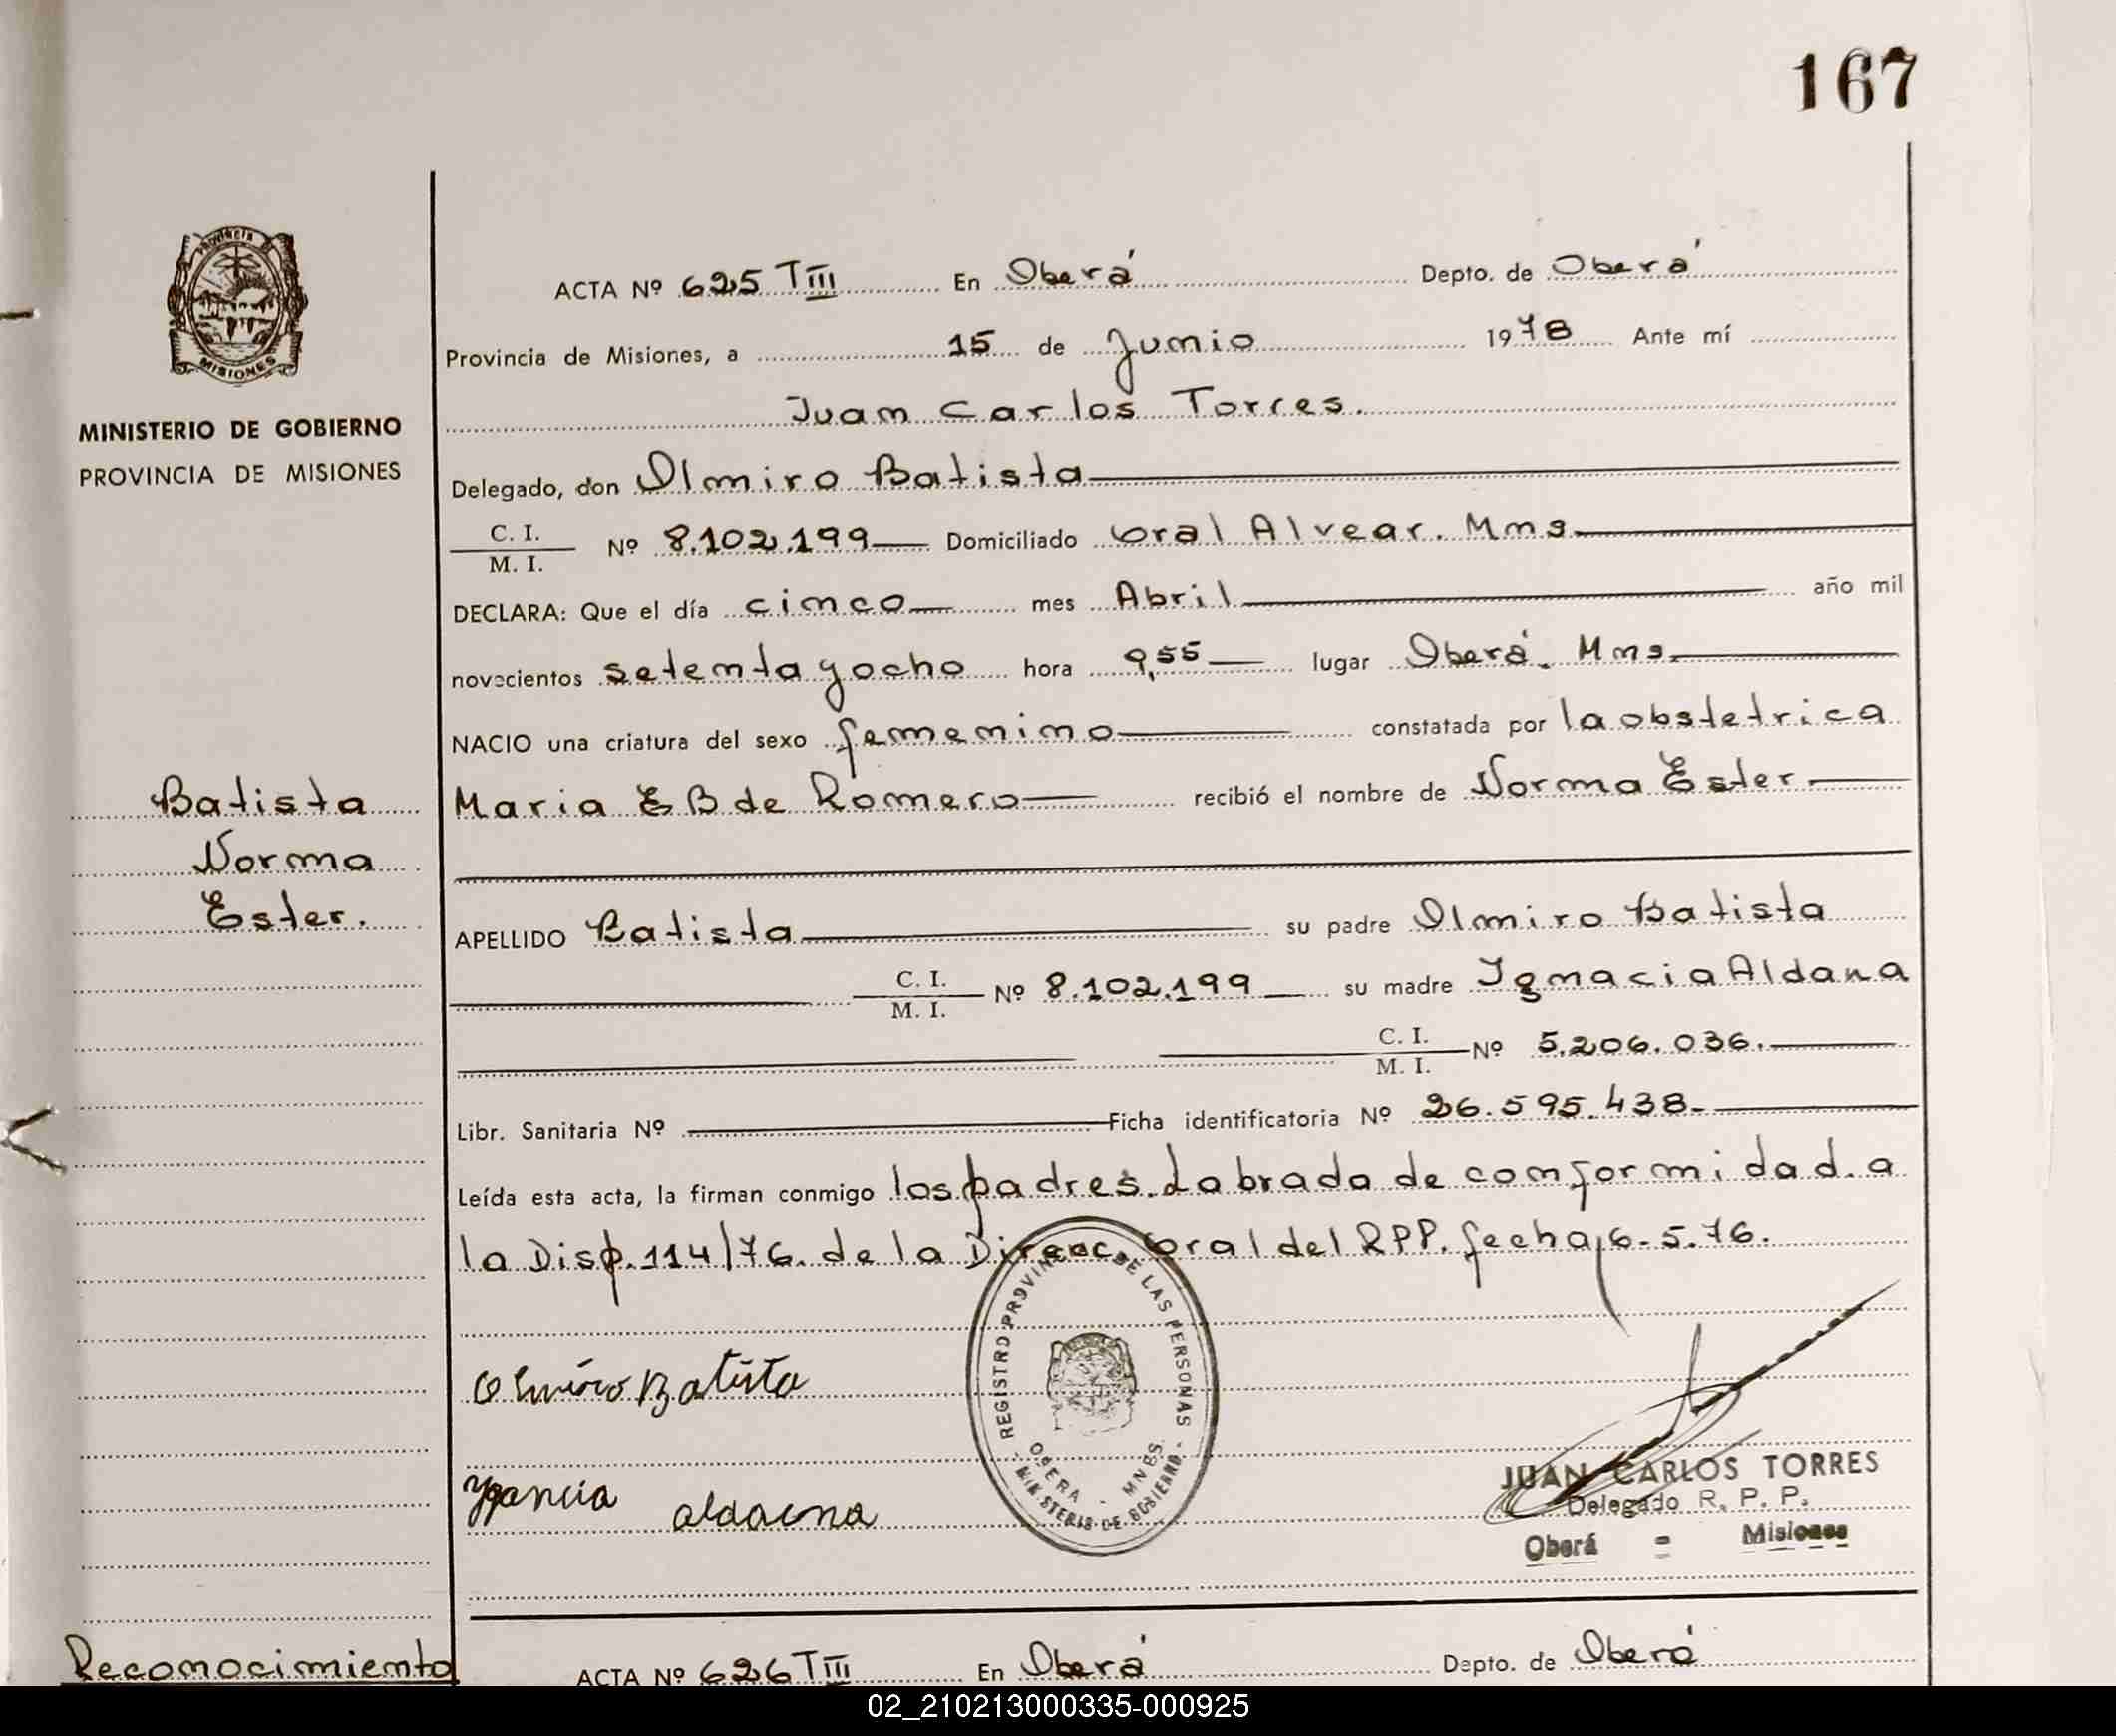 167
Provincia
MISIONES
MINISTERIO DE GOBIERNO
PROVINCIA DE MISIONES
Batista
Norma
Ester.
ACTA Nº 625 TIII En Oberá Depto. de Oberá
Provincia de Misiones, a 15 de Junio 1978 Ante mí
Juan Carlos Torres.
Delegado, don Olmiro Batista
C. I.
M. I.
Nº 8.102.199 Domiciliado Gral Alvear. Mnes
DECLARA: Que el día cinco mes Abril año mil
novecientos setenta y ocho hora 9,55 lugar Oberá. Mnes.
NACIO una criatura del sexo femenino constatada por la obstetrica
Maria E B de Romero recibió el nombre de Norma Ester
APELLIDO Batista su padre Olmiro Batista
C. I.
M. I.
Nº 8.102.199 su madre Ignacia Aldana
C. I.
M. I.
Nº 5.206.036.
Libr. Sanitaria Nº Ficha identificatoria Nº 26.595.438-
Leída esta acta, la firman conmigo los padres. Labrada de conformidad a
la Disp. 114/76. de la Direcc. Gral del RPP. fecha 6-5.76.
Olmiro Batista
REGISTRO PROVINCIAL DE LAS PERSONAS
OBERA - MNES.
MINISTERIO DE GOBIERNO
Ygancia aldaena
JUAN CARLOS TORRES
Delegado R. P. P.
Oberá = Misiones
Reconocimiento
ACTA Nº 626 TIII En Oberá Depto. de Oberá
02_210213000335-000925